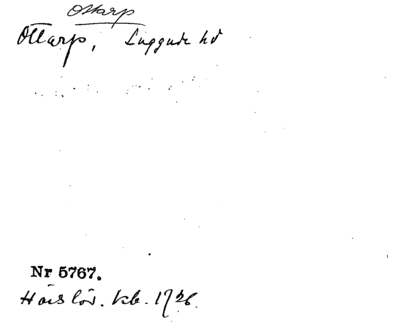 Ottarp
Ottarp, Luggude hd
Nr 5767.
Håslöv. kb. 1726.